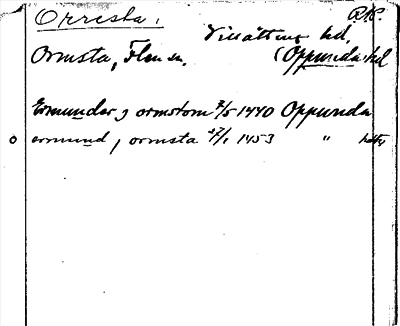 Orresta.
Villåttinge hd.
Ormsta, Flen sn. (Oppunda hd
Ermunder j ormstom 8/5 1440 Oppunda
ermund j ormsta 27/1 1453 "